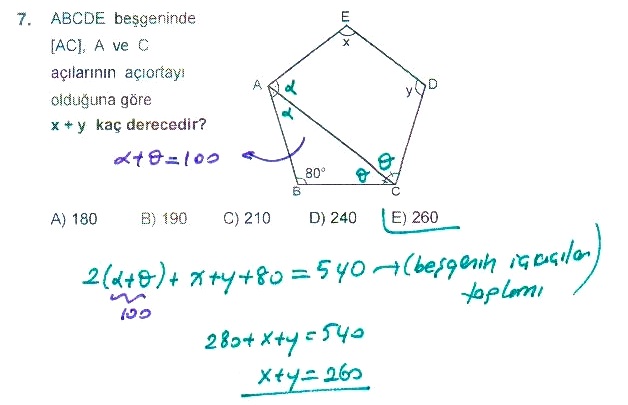 7. ABCDE beşgeninde
[AC], A ve C
açılarının açıortayı
olduğuna göre
x + y kaç derecedir?
α+θ=100
E
x
A
α
α
y
D
80°
B
θ
θ
x
C
A) 180 B) 190 C) 210 D) 240 E) 260
2(α+θ)+x+y+80=540→(beşgenin iç açıları
toplamı)
100
280+x+y=540
x+y=260